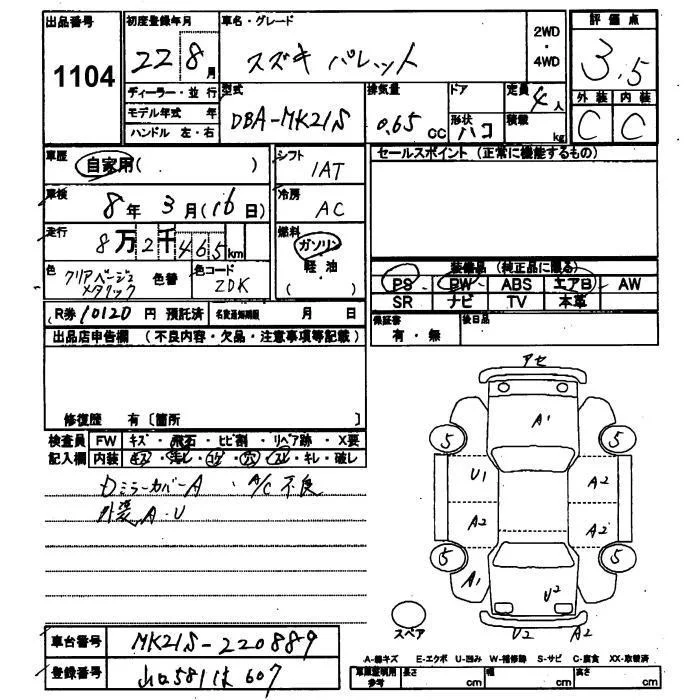 出品番号
1104
初度登録年月
22 8月
ディーラー・並行
モデル年式 年
ハンドル 左・右
車名・グレード
スズキ パレット
2WD
・
4WD
型式
DBA-MK21S
排気量
0.65 CC
ドア
形状
ハコ
定員
4人
積載
kg
評価点
3.5
外装 内装
C C
車歴
自家用( )
車検
8年 3月(16日)
走行
8万2千465km
色
クリアベージュ
メタリック
色替
色コード
ZDK
シフト
IAT
冷房
AC
燃料
ガソリン
軽・油
( )
セールスポイント (正常に機能するもの)
装備品 (純正品に限る)
PS PW ABS エアB AW
SR ナビ TV 本革
保証書
有・無
後日品
R券 10120 円 預託済
名変通知期限 月 日
出品店申告欄 (不良内容・欠品・注意事項等記載)
修復歴 有〔箇所 〕
検査員 FW キズ・飛石・ヒビ割・リペア跡・X要
記入欄 内装 キズ・汚レ・コゲ・穴・スレ・キレ・破レ
Dミラーカバー A ・A/C 不良
外装 A・U
アセ
A1
5 5
U1 A2
A2 A2
5 5
A1
U2
スペア
U2 A2
A-線キズ E-エクボ U-凹み W-補修跡 S-サビ C-腐食 XX-取替済
車台番号
MK21S-220889
登録番号
607
参考
長さ cm
幅 cm
高さ cm